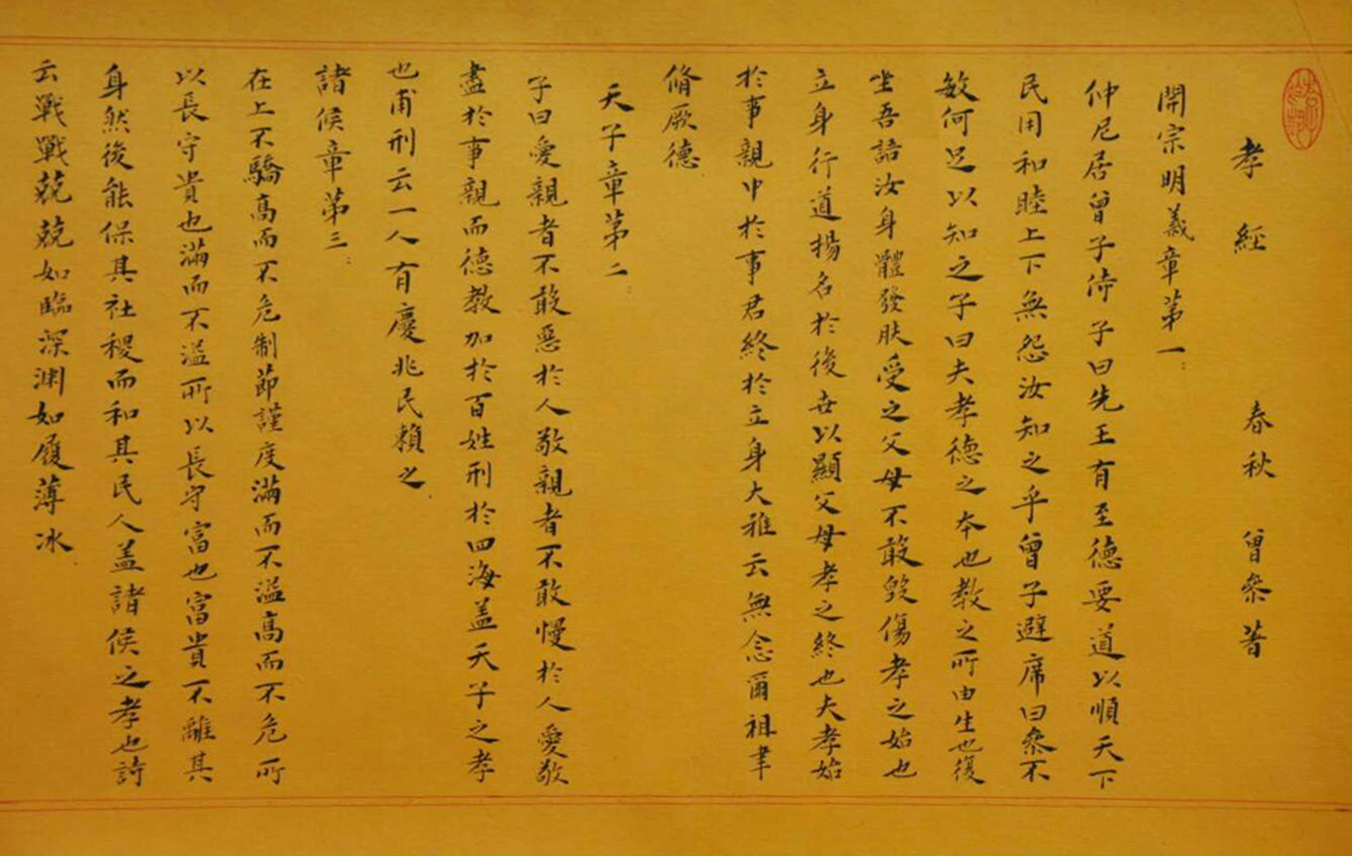 孝經 春秋 曾參著
開宗明義章第一
仲尼居曾子侍子曰先王有至德要道以順天下
民用和睦上下無怨汝知之乎曾子避席曰參不
敏何足以知之子曰夫孝德之本也教之所由生也復
坐吾語汝身體發肤受之父母不敢毀傷孝之始也
立身行道揚名於後世以顯父母孝之終也夫孝始
於事親中於事君終於立身大雅云無念爾祖聿
脩厥德
天子章第二
子曰愛親者不敢惡於人敬親者不敢慢於人愛敬
盡於事親而德教加於百姓刑於四海盖天子之孝
也甫刑云一人有慶兆民賴之
諸侯章第三
在上不驕高而不危制節謹度滿而不溢高而不危所
以長守貴也滿而不溢所以長守富也富貴不離其
身然後能保其社稷而和其民人盖諸侯之孝也詩
云戰戰兢兢如臨深渊如履薄冰